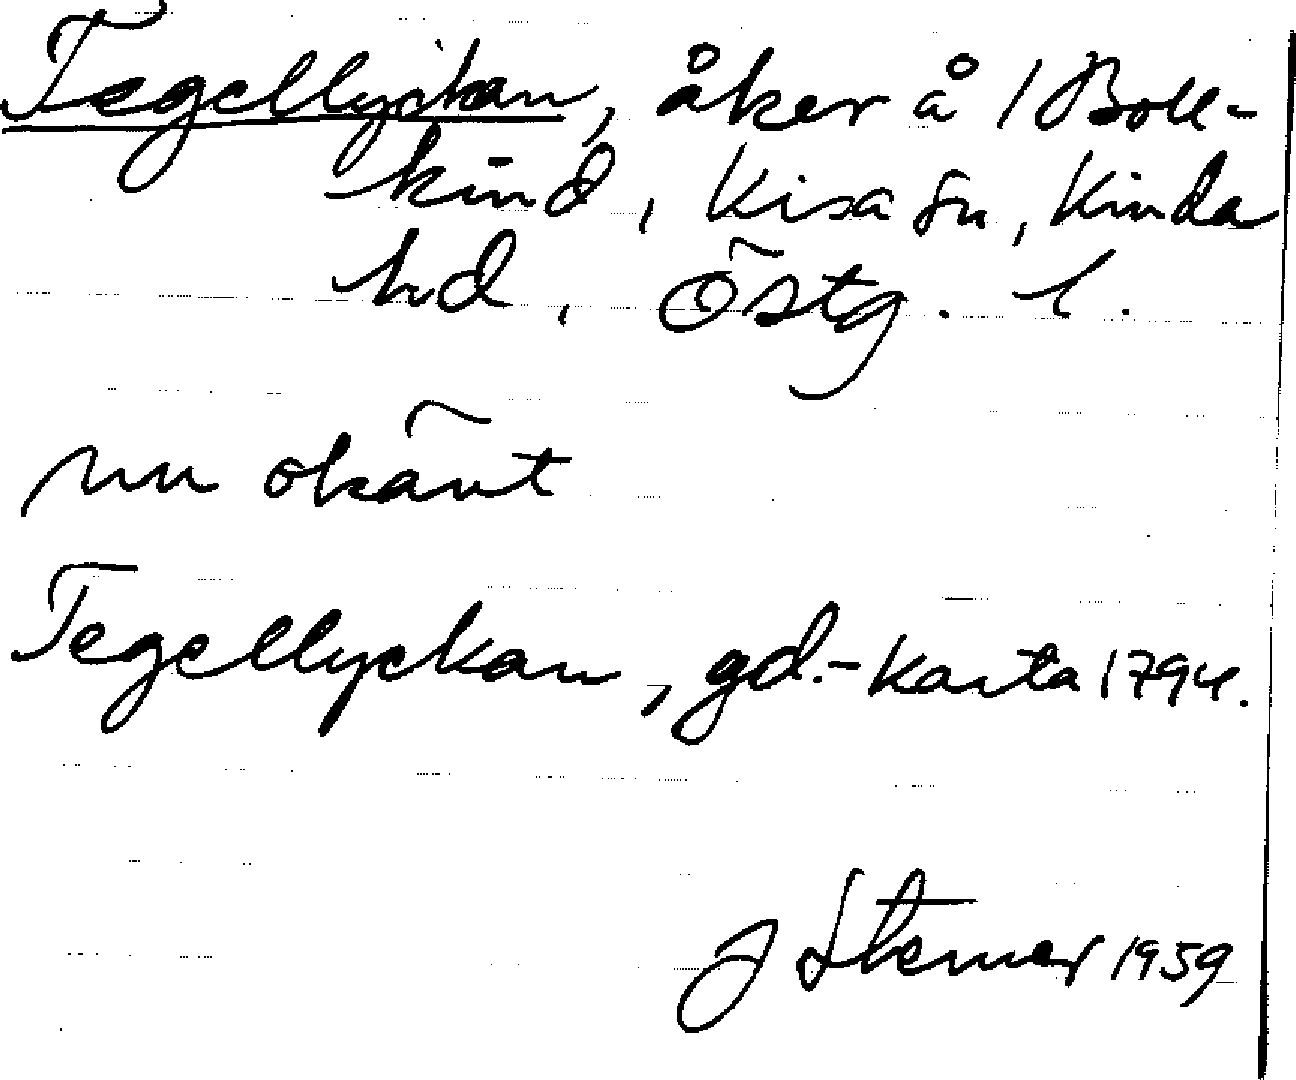 Tegellyckan, åker å 1 Boll-
kind, Kisa sn, Kinda
hd, Östg. l.
nu okänt
Tegellyckan, gd.-karta 1794.
J Sterner 1959